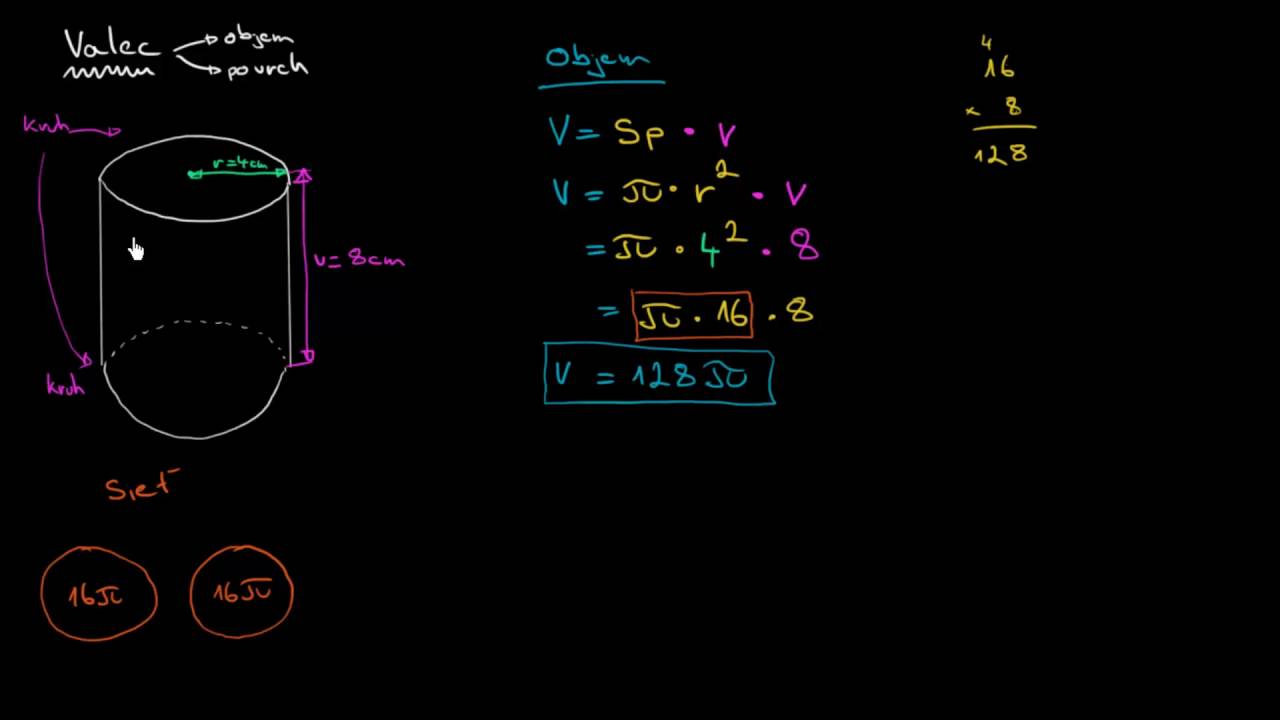 Valec
objem
povrch
kruh
r=4cm
v=8cm
kruh
Sieť
16π
16π
Objem
V = Sp · v
V = π · r² · v
= π · 4² · 8
= π · 16 · 8
V = 128π
4
16
× 8
128